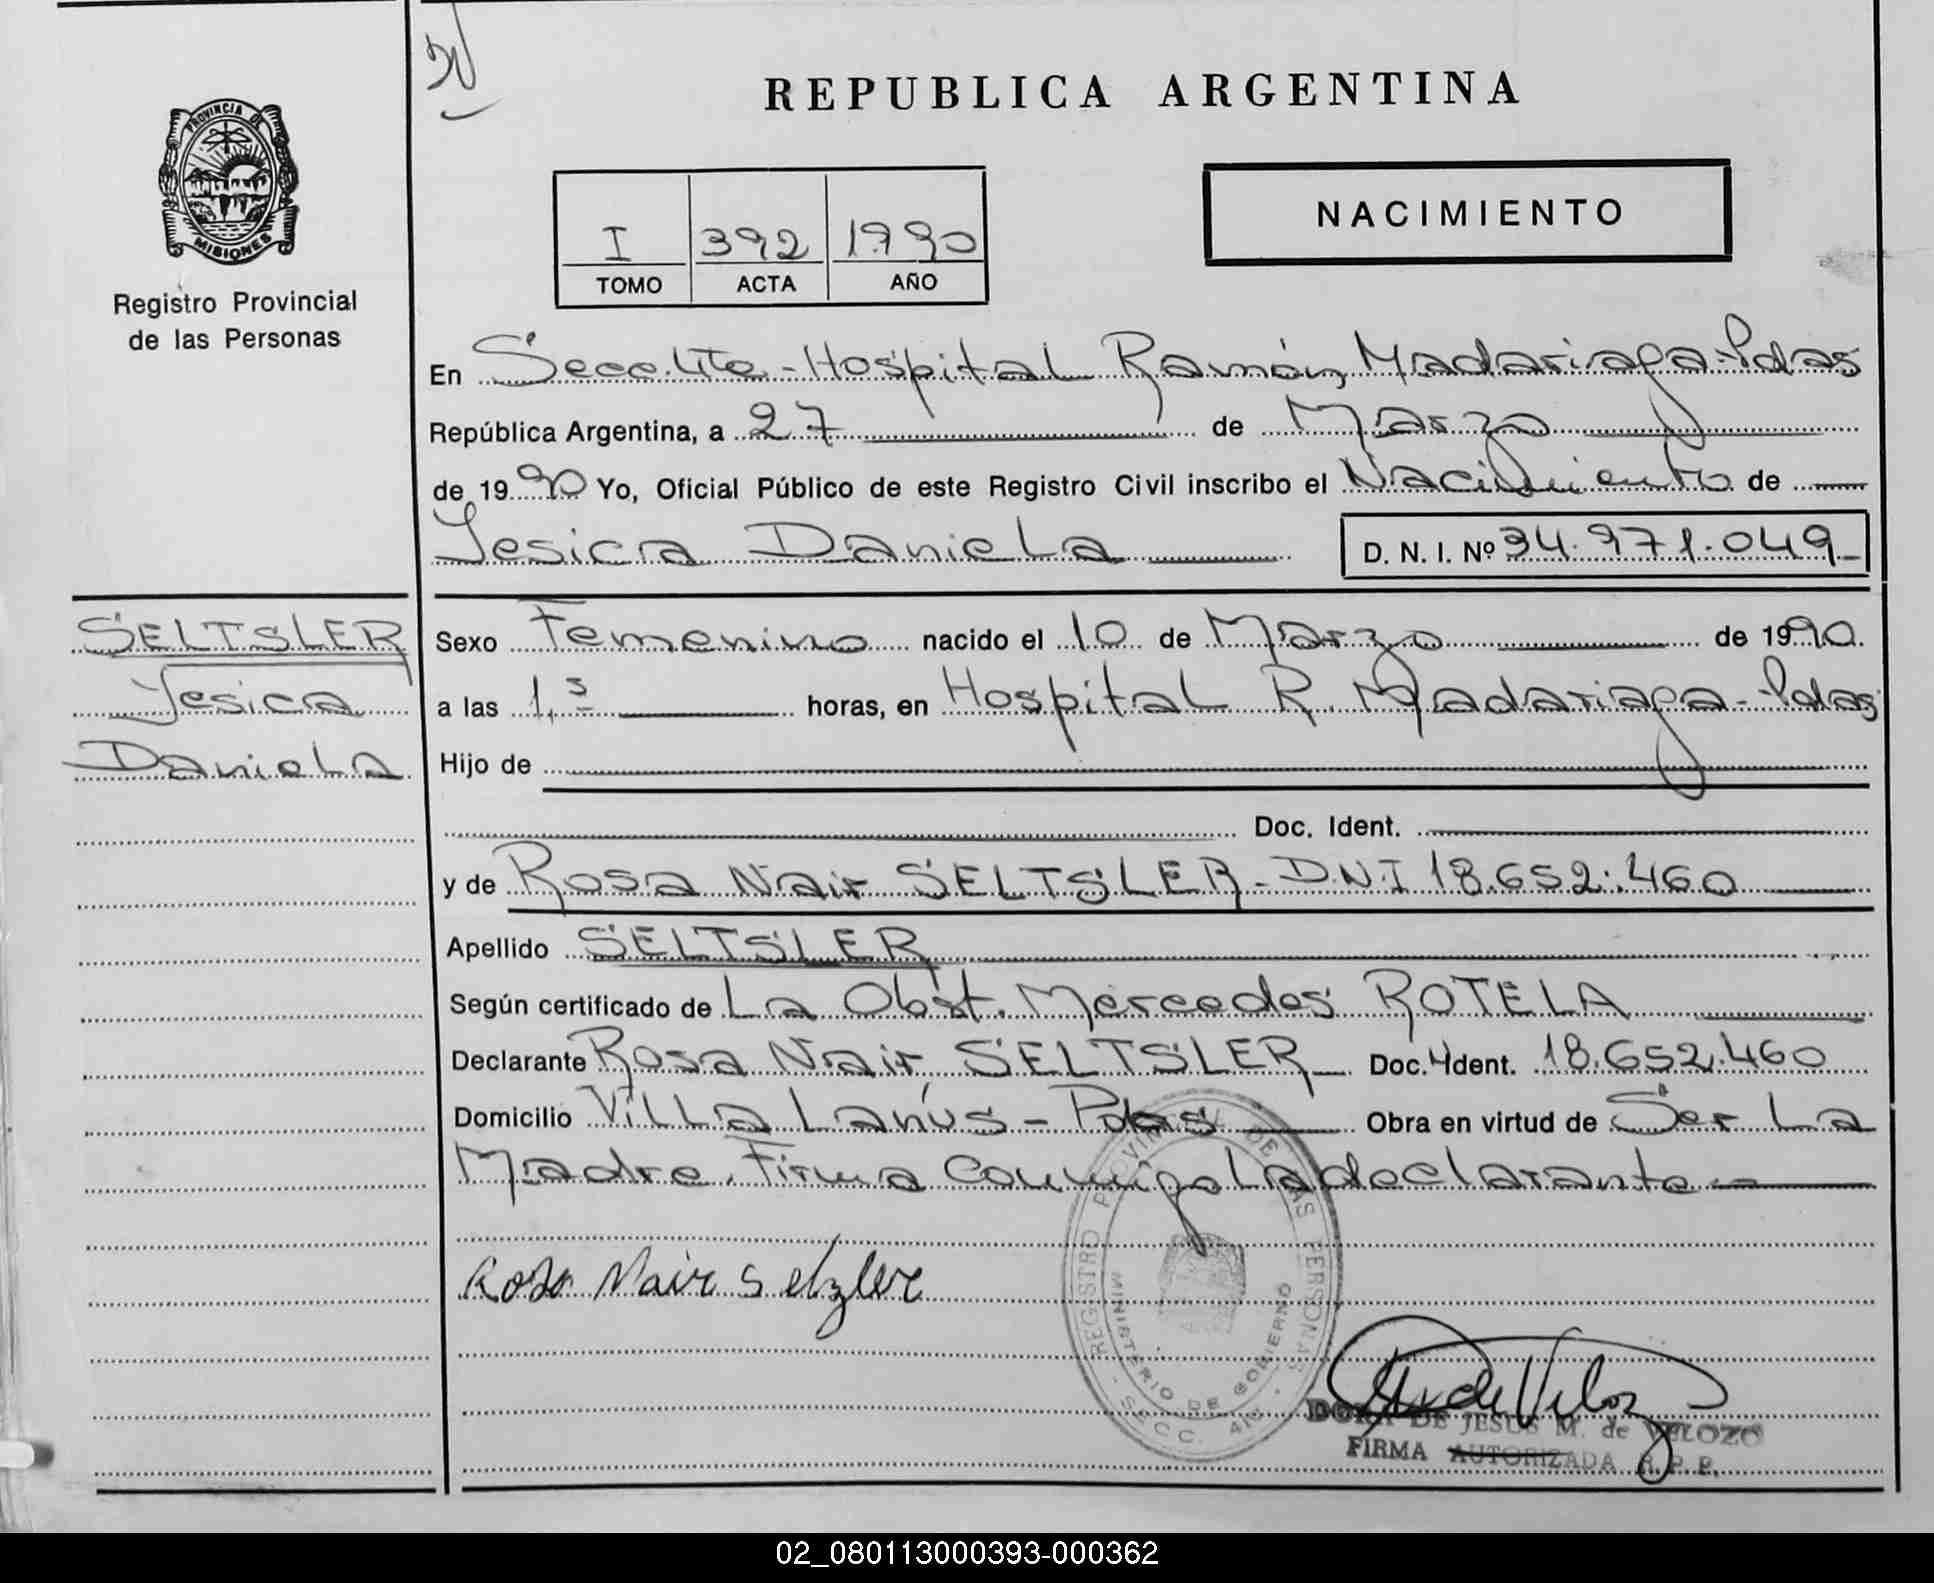 REPUBLICA ARGENTINA
PROVINCIA DE
MISIONES
Registro Provincial
de las Personas
I 392 1990
TOMO ACTA AÑO
NACIMIENTO
En Secc. 4ta - Hospital Ramón Madariaga - Pdas
República Argentina, a 27 de Marzo
de 1990 Yo, Oficial Público de este Registro Civil inscribo el Nacimiento de
Yesica Daniela D. N. I. Nº 34.971.049
SELTSLER
Yesica
Daniela
Sexo Femenino nacido el 10 de Marzo de 1990.
a las 1,5 horas, en Hospital R. Madariaga - Pdas
Hijo de
Doc. Ident.
y de Rosa Nair SELTSLER - D.N.I 18.652.460
Apellido SELTSLER
Según certificado de La Obst. Mercedes ROTELA
Declarante Rosa Nair SELTSLER Doc. Ident. 18.652.460
Domicilio Villa Lanús - Pdas Obra en virtud de Ser La
Madre. Firma Conmigo La declarante
Rosa Nair Selzler
REGISTRO PROVINCIAL DE LAS PERSONAS
MINISTERIO DE GOBIERNO
- SECC. 4ta -
DORA DE JESUS M. de VELOZO
FIRMA AUTORIZADA R. P. P.
02_080113000393-000362